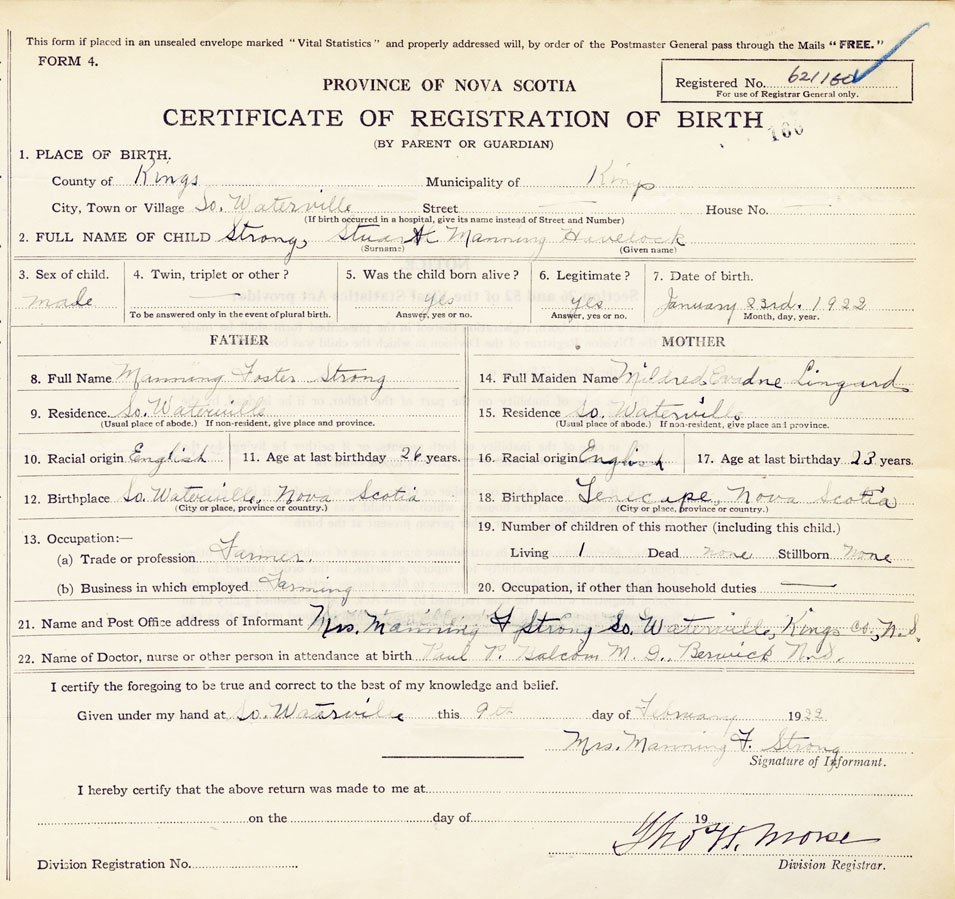 This form if placed in an unsealed envelope marked "Vital Statistics" and properly addressed will, by order of the Postmaster General pass through the Mails "FREE."
FORM 4.
Registered No. 621160
For use of Registrar General only.
PROVINCE OF NOVA SCOTIA
CERTIFICATE OF REGISTRATION OF BIRTH
160
(BY PARENT OR GUARDIAN)
1. PLACE OF BIRTH.
County of Kings Municipality of Kings
City, Town or Village So. Waterville Street House No.
(If birth occurred in a hospital, give its name instead of Street and Number)
2. FULL NAME OF CHILD Strong, Stuart Manning Havelock
(Surname) (Given name)
3. Sex of child. 4. Twin, triplet or other? 5. Was the child born alive? 6. Legitimate? 7. Date of birth.
male — yes yes January 23rd. 1922
To be answered only in the event of plural birth. Answer, yes or no. Answer, yes or no. Month, day, year.
FATHER MOTHER
8. Full Name Manning Foster Strong 14. Full Maiden Name Mildred Evadne Lingard
9. Residence. So. Waterville 15. Residence So. Waterville
(Usual place of abode.) If non-resident, give place and province. (Usual place of abode.) If non-resident, give place and province.
10. Racial origin English 11. Age at last birthday 26 years. 16. Racial origin English 17. Age at last birthday 23 years.
12. Birthplace So. Waterville, Nova Scotia 18. Birthplace Tenecape, Nova Scotia
(City or place, province or country.) (City or place, province or country.)
13. Occupation:— 19. Number of children of this mother (including this child.)
(a) Trade or profession Farmer. Living 1 Dead none Stillborn None
(b) Business in which employed Farming 20. Occupation, if other than household duties —
21. Name and Post Office address of Informant Mrs. Manning F Strong So. Waterville, Kings Co., N.S.
22. Name of Doctor, nurse or other person in attendance at birth Paul P. Balcom M.D., Berwick N.S.
I certify the foregoing to be true and correct to the best of my knowledge and belief.
Given under my hand at So. Waterville this 9th day of February 19
Mrs. Manning F. Strong
Signature of Informant.
I hereby certify that the above return was made to me at
on the day of 19
Tho H. Morse
Division Registration No. Division Registrar.